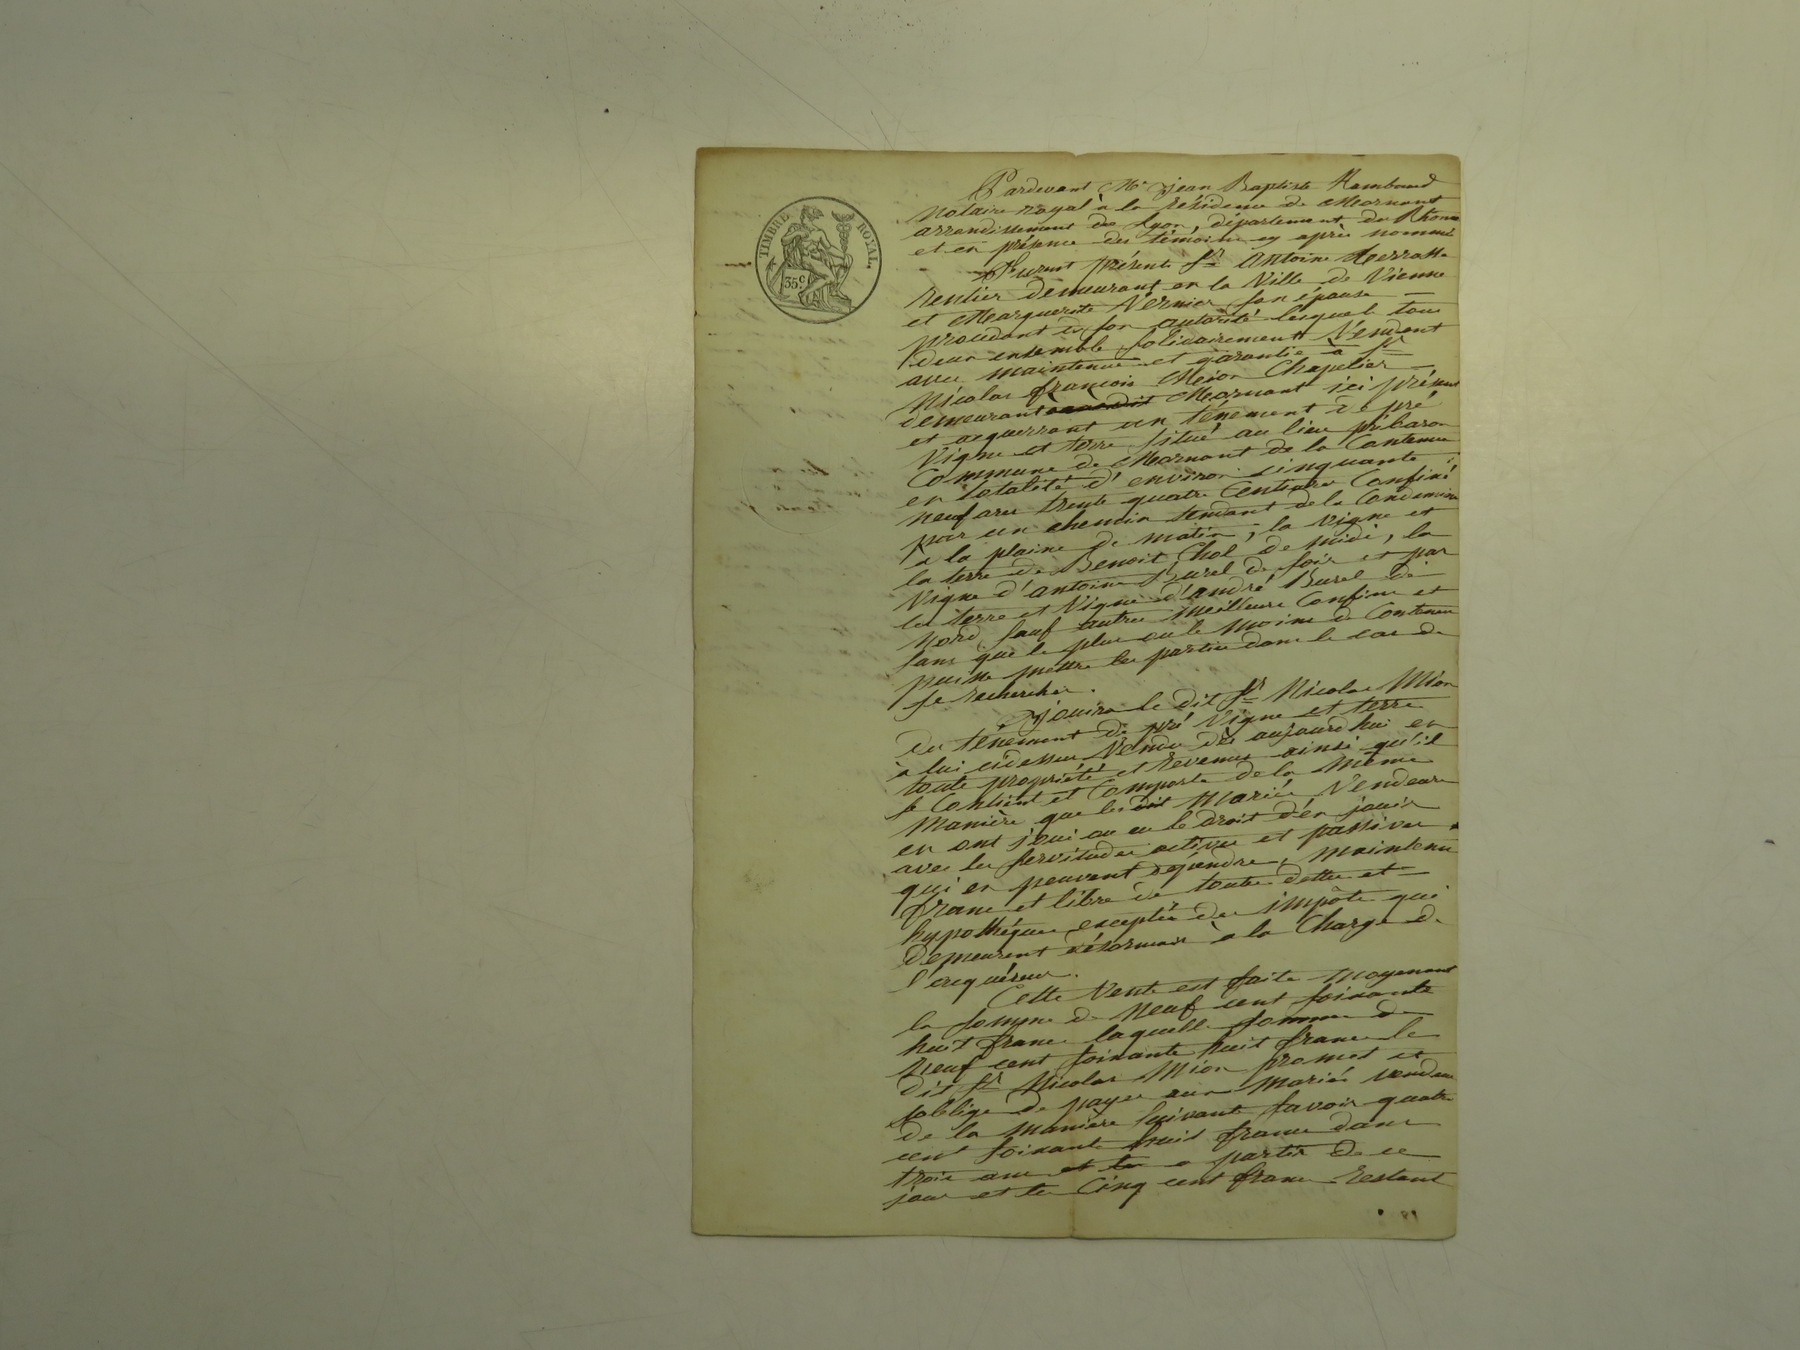 TIMBRE ROYAL.
35 c
Pardevant Me jean Baptiste Rambaud
Notaire royal à la résidence de Mornant
arrondissement de Lyon, département du Rhone
et en présence des témoins cy après nommés
furent présents Sr Antoine
Rentier demeurant en la Ville de Vienne
et Marguerite Vernier son épouse
procedant de son autorité lesquels tous
deux ensemble solidairement Vendent
avec maintenue et garantie à Sr
Nicolas françois Meion Chapelier
demeurant Mornant ici présent
et acquerrant un ténement de pré
Vigne et terre situé au lieu
Commune de Mornant de la Contenue
en totalité d'environ cinquante
neuf ares trente quatre Centiares Confiné
par un chemin tendant de la Condemine
a la plaine de matin, la vigne et
la terre de Benoit Chol de midi, la
Vigne d'antoine Burel de soir et par
les terre et Vigne d'andré Burel de
Nord, sauf autres meilleurs Confins et
sans que le plus ou le moins de Contenue
puisse mettre les parties dans le cas de
se rechercher.
jouira le dit Sr Nicolas Mion
du ténement de pré Vigne et terre
à lui cidessus Vendu dès aujourdhui en
toute propriété et revenus ainsi qu'il
se Contient et Comporte de la même
Manière que les dit Mariés Vendeurs
en ont joui ou eu le droit d'en jouir
avec les servitudes actives et passives
qui en peuvent dépendre, maintenu
franc et libre de toutes dettes et
hypothéques exceptée des impôts qui
demeurent désormais à la Charge de
l'acquéreur.
Cette Vente est faite moyenant
la somme de Neuf cent soixante
huit francs laquelle somme de
Neuf cent soixante huit francs le
dit Sr Nicolas Mion promet et
s'oblige de payer aux Mariés vendeurs
de la manière suivante savoir quatre
cent soixante huit francs dans
trois ans et les a partir de ce
jour et les Cinq cent francs Restant